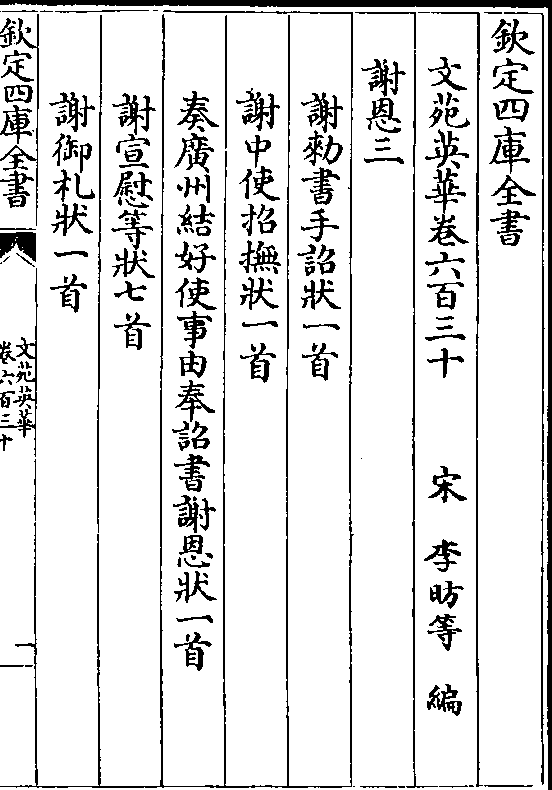 欽定四庫全書
文苑英華卷六百三十 宋 李昉等 編
謝恩三
謝勑書手詔狀一首
謝中使招撫狀一首
奏廣州結好使事由奉詔書謝恩狀一首
謝宣慰等狀七首
謝御札狀一首
欽定四庫全書
文苑英華
卷六百三十
一